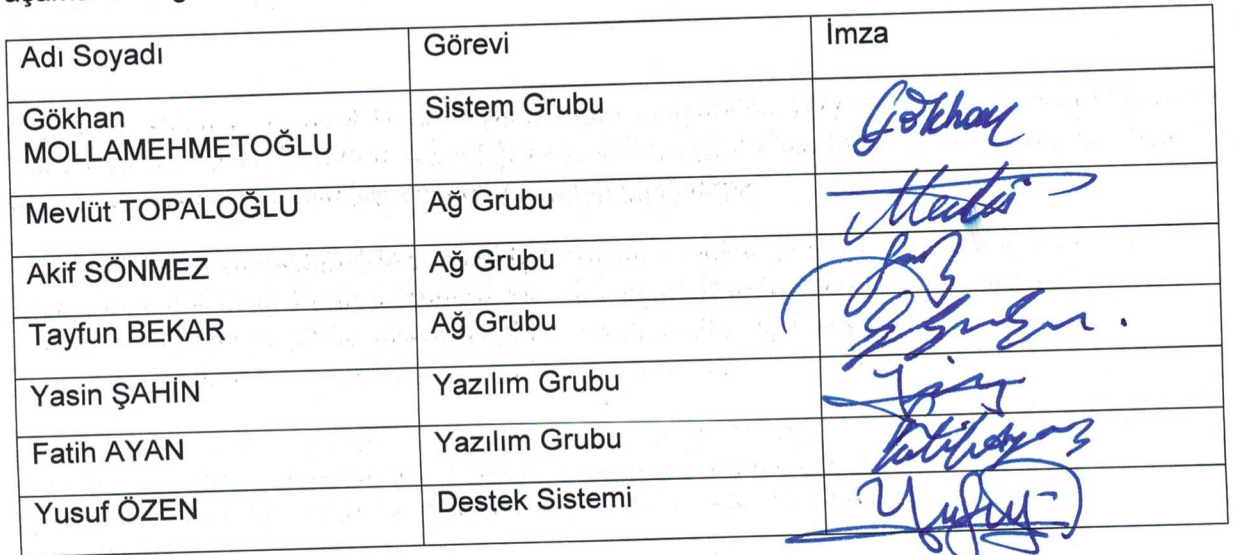 Adı Soyadı Görevi İmza
Gökhan Sistem Grubu Gökhan
MOLLAMEHMETOĞLU
Mevlüt TOPALOĞLU Ağ Grubu
Akif SÖNMEZ Ağ Grubu
Tayfun BEKAR Ağ Grubu
Yasin ŞAHİN Yazılım Grubu
Fatih AYAN Yazılım Grubu
Yusuf ÖZEN Destek Sistemi